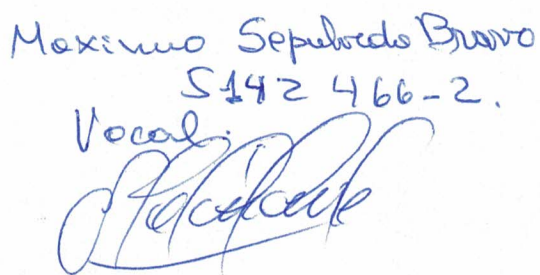 Maximo Sepulvedo Bravo
5142 466-2.
Vocal.